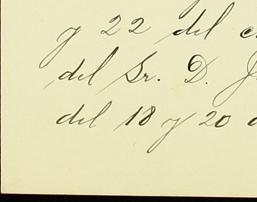 y 22 del
del Sr. D. J
del 18 y 20